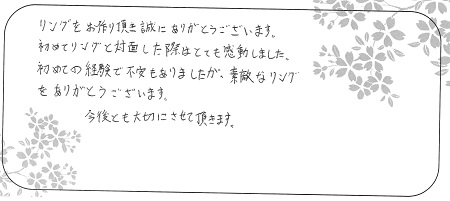 リングをお作り頂き誠にありがとうございます。
初めてリングと対面した際はとても感動しました。
初めての経験で不安もありましたが、素敵なリング
をありがとうございます。
今後とも大切にさせて頂きます。